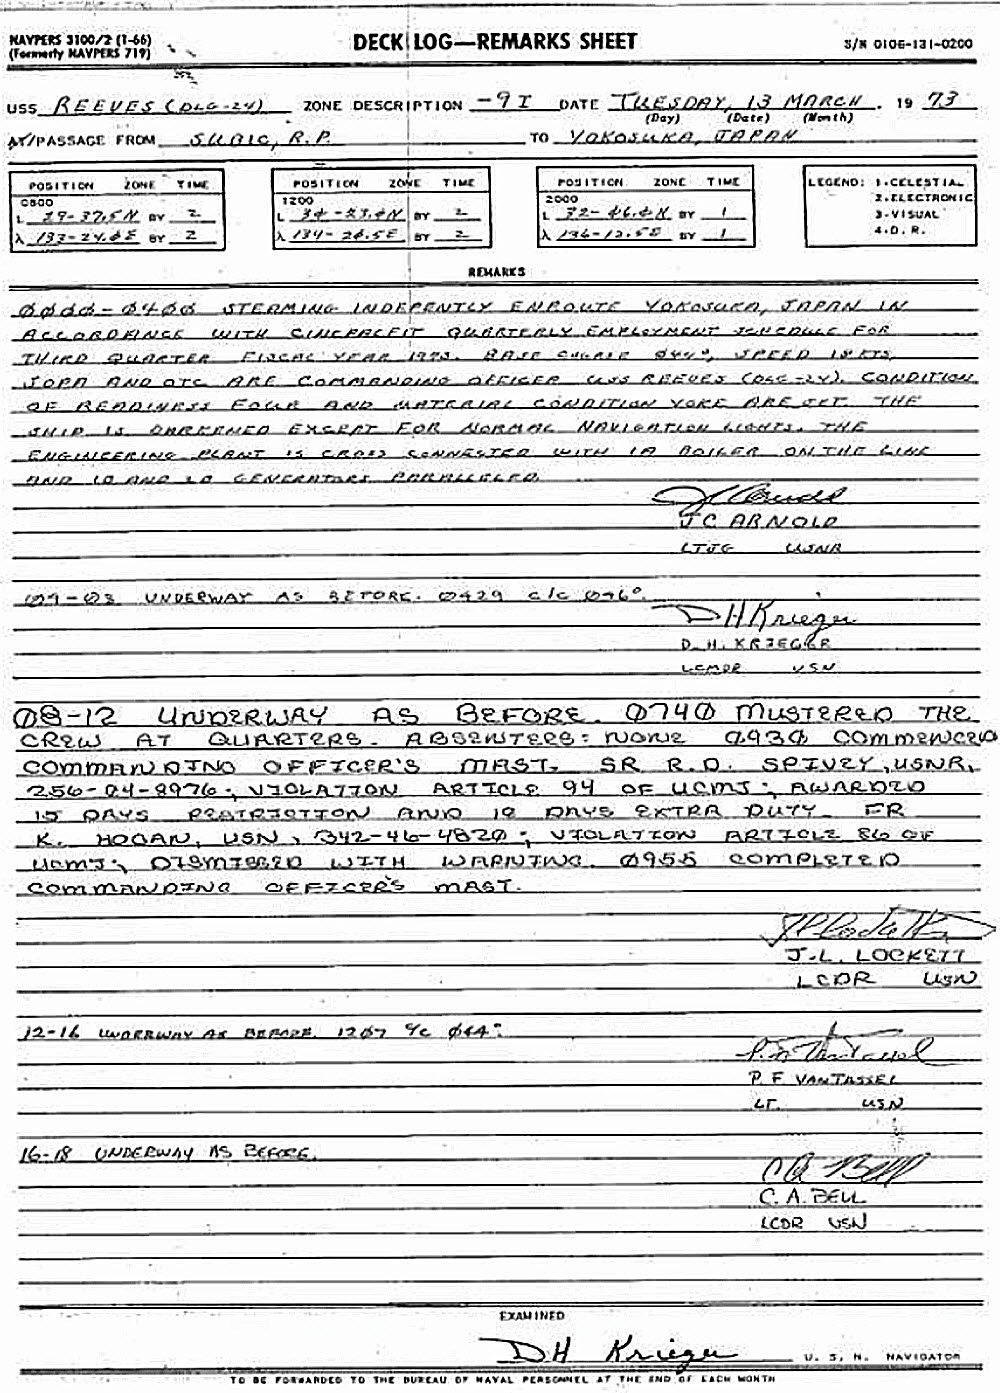 NAVPERS 3100/2 (1-66)
(Formerly NAVPERS 719)
DECK LOG—REMARKS SHEET
S/N 0106-131-0200
USS REEVES (DLG-24) ZONE DESCRIPTION -9I DATE TUESDAY, 13 MARCH, 19 73
(Day) (Date) (Month)
AT/PASSAGE FROM SUBIC, R.P. TO YOKOSUKA, JAPAN
POSITION ZONE TIME
0800
L 29-37.5N BY 2
λ 133-24.0E BY 2
POSITION ZONE TIME
1200
L BY 2
λ 134-26.5E BY 2
POSITION ZONE TIME
2000
L 32- BY 1
λ 136-12.5E BY 1
LEGEND: 1-CELESTIAL
2-ELECTRONIC
3-VISUAL
4-D.R.
REMARKS
0000-0400 STEAMING INDEPENTLY ENROUTE YOKOSUKA, JAPAN IN
ACCORDANCE WITH CINCPACFLT QUARTERLY EMPLOYMENT SCHEDULE FOR
THIRD QUARTER FISCAL YEAR 1973. BASE COURSE 044°, SPEED 18 KTS,
SOPA AND OTC ARE COMMANDING OFFICER USS REEVES (DLG-24). CONDITION
OF READINESS FOUR AND MATERIAL CONDITION YOKE ARE SET. THE
SHIP IS DARKENED EXCEPT FOR NORMAL NAVIGATION LIGHTS. THE
ENGINEERING PLANT IS CROSS CONNECTED WITH 1A BOILER ON THE LINE
AND AND GENERATORS PARALLELED.
J C Arnold
J C ARNOLD
LTJG USNR
04-08 UNDERWAY AS BEFORE. 0429 c/c 046°.
D H Krieger
D. H. KRIEGER
LCMDR USN
08-12 UNDERWAY AS BEFORE. 0740 MUSTERED THE
CREW AT QUARTERS. ABSENTEES: NONE 0930 COMMENCED
COMMANDING OFFICER'S MAST. SR R.D. SPIVEY, USNR,
256-04-8976; VIOLATION ARTICLE 94 OF UCMJ; AWARDED
15 DAYS RESTRICTION AND 10 DAYS EXTRA DUTY. FR
K. HOGAN, USN, 342-46-4820; VIOLATION ARTICLE 86 OF
UCMJ; DISMISSED WITH WARNING. 0955 COMPLETED
COMMANDING OFFICER'S MAST.
J L Lockett
J.L. LOCKETT
LCDR USN
12-16 UNDERWAY AS BEFORE. 1207 c/c 044°.
P. F. VanTassel
P. F VANTASSEL
LT. USN
16-18 UNDERWAY AS BEFORE.
C A Bell
C. A. BELL
LCDR USN
EXAMINED
D H Krieger U. S. N. NAVIGATOR
TO BE FORWARDED TO THE BUREAU OF NAVAL PERSONNEL AT THE END OF EACH MONTH